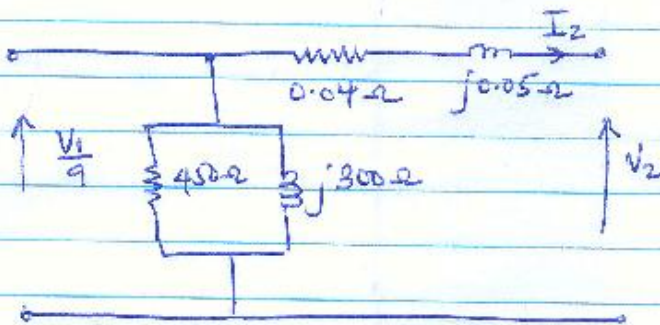 I₂
0.04 Ω
j0.05 Ω
V₁/a
450 Ω
j300 Ω
V₂